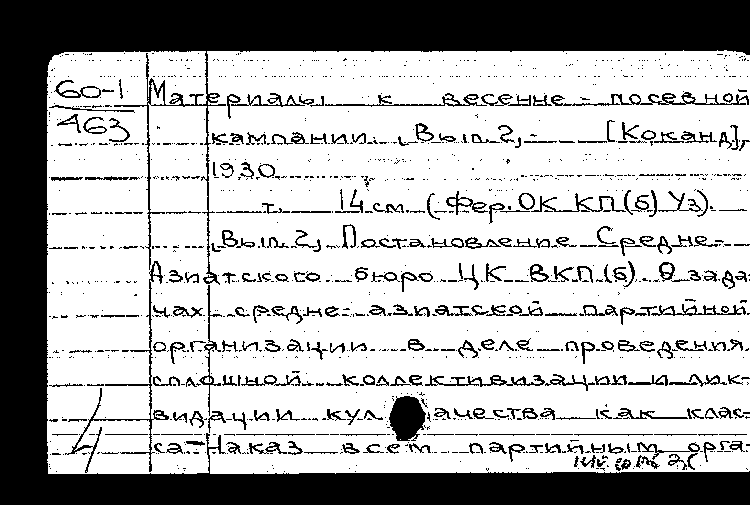 60-1
463
Материалы к весенне-посевной
кампании. , Вып. 2, - [Коканд],
1930
т. 14 см. (Фер. ОК КП(б) Уз).
, Вып. 2, Постановление Средне-
Азиатского бюро ЦК ВКП(б). О зада
чах средне-азиатской партийной
организации в деле проведения
сплошной коллективизации и лик-
видации кулачества как клас-
са-Наказ всем партийным орга-